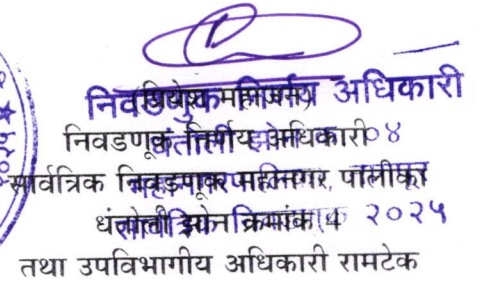 निवडणुक निर्णय अधिकारी
निवडणूक निर्णय अधिकारी
धंतोली झोन ०४
सार्वत्रिक निवडणूक महानगर पालीका
धंतोली झोन क्रमांक 4
सार्वत्रिक २०२५
तथा उपविभागीय अधिकारी रामटेक